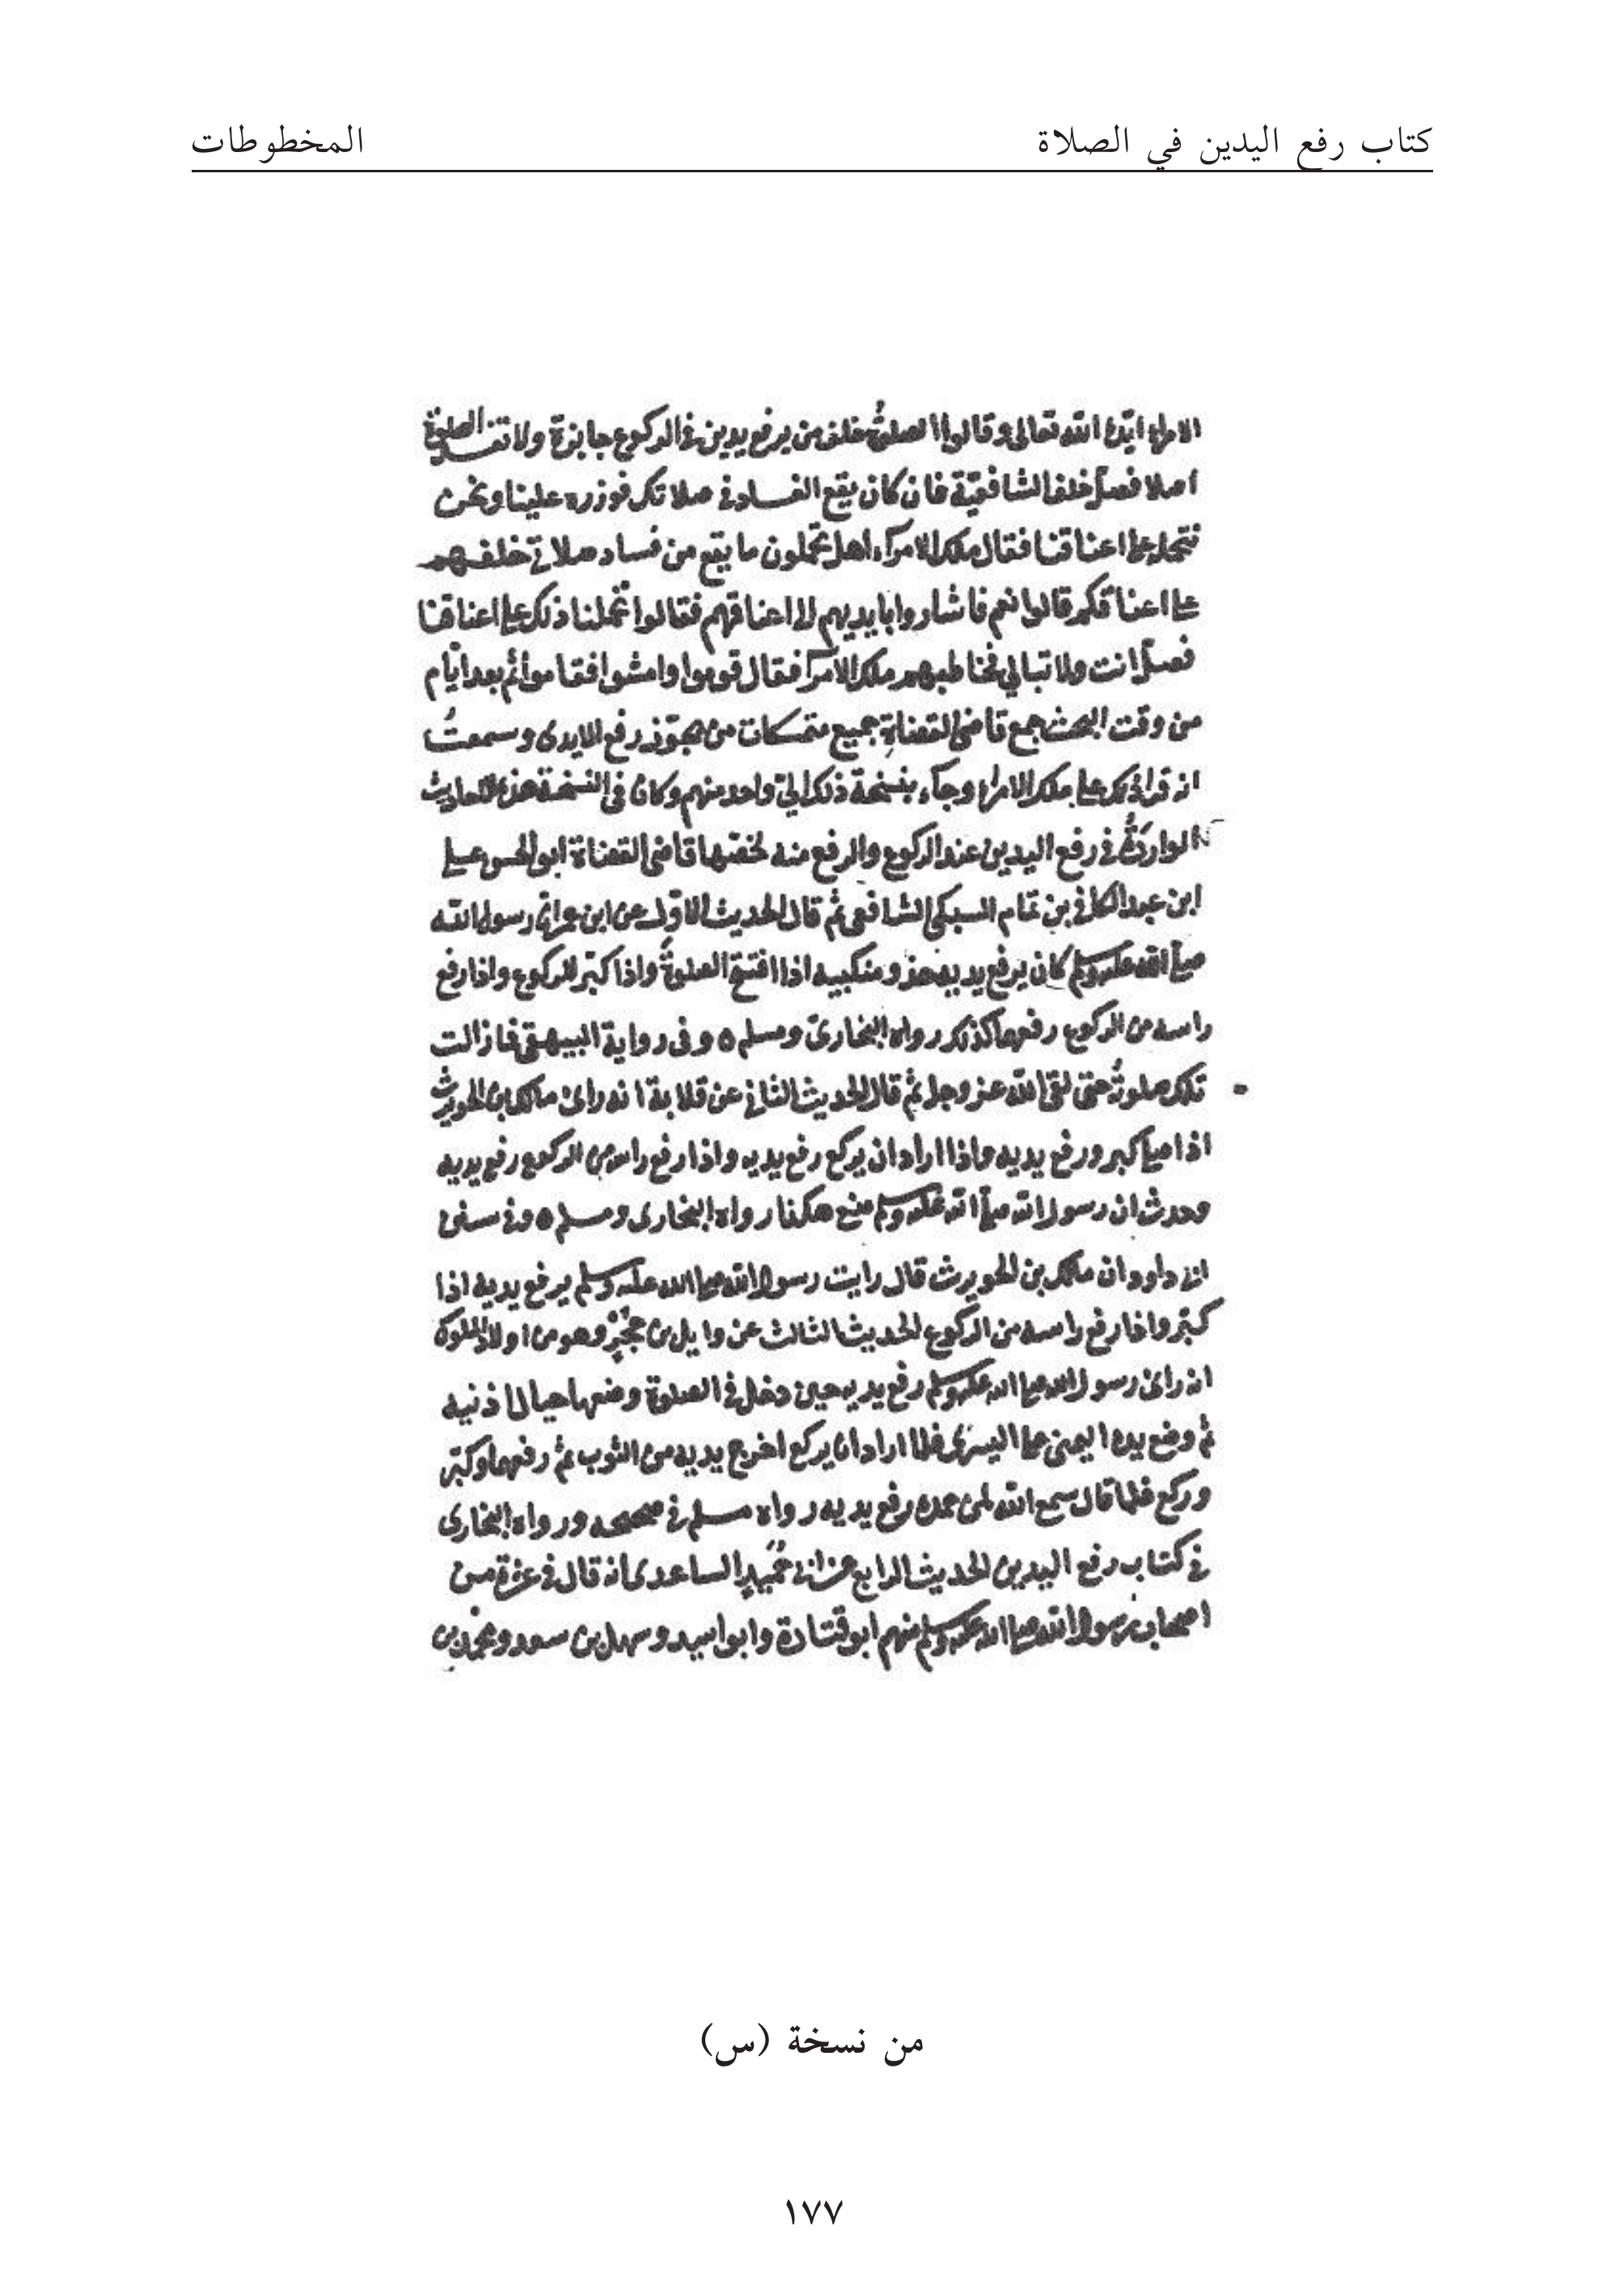 كتاب رفع اليدين في الصلاة
المخطوطات
الامراء ايده الله تعالى وقالوا الصلوة خلف من يرفع يديه في الركوع جايزة ولا تفسد الصلوة
اصلا فصل خلف الشافعية فان كان يقع الفساد في صلاتك فوزره علينا ونحن
نتحمله على اعناقنا فقال ملك الامرآء اهل تحملون ما يقع من فساد صلاتي خلفهم
على اعناقكم قالوا نعم فاشاروا بايديهم الى اعناقهم فقالوا تحملنا ذلك على اعناقنا
فصل انت ولا تبالي فخاطبهم ملك الامرآ فقال قوموا وامشوا فقاموا ثم بعد ايام
من وقت البحث جمع قاضي القضاة جميع متمسكات من يجوز رفع الايدى وسمعت
انه قرا ذلك على ملك الامراء وجآء بنسخة ذلك الي واحد منهم وكان في النسخة هذه الاحاديث
الواردة في رفع اليدين عند الركوع والرفع منه لخصها قاضي القضاة ابو الحسن علي
ابن عبد الكافي بن تمام السبكي الشافعي ثم قال الحديث الاول عن ابن عمر ان رسول الله
صلى الله عليه وسلم كان يرفع يديه حذو منكبيه اذا افتتح الصلوة واذا كبر للركوع واذا رفع
راسه من الركوع رفعهما كذلك رواه البخاري ومسلم ٥ وفي رواية البيهقي فما زالت
تلك صلوته حتى لقي الله عز وجل ثم قال الحديث الثاني عن قلابة انه راى مالك بن الحويرث
اذا صلى كبر ورفع يديه واذا اراد ان يركع رفع يديه واذا رفع راسه من الركوع رفع يديه
وحدث ان رسول الله صلى الله عليه وسلم صنع هكذا رواه البخارى ومسلم ٥ وفي سنن
ابي داود ان مالك بن الحويرث قال رايت رسول الله صلى الله عليه وسلم يرفع يديه اذا
كبر واذا رفع راسه من الركوع الحديث الثالث عن وايل بن حجر وهو من اولاد الملوك
انه راى رسول الله صلى الله عليه وسلم رفع يديه حين دخل في الصلوة وضعهما حيال اذنيه
ثم وضع يده اليمنى على اليسرى فلما اراد ان يركع اخرج يديه من الثوب ثم رفعهما وكبر
وركع فلما قال سمع الله لمن حمده رفع يديه رواه مسلم في صحيحه ورواه البخارى
في كتاب رفع اليدين الحديث الرابع عن ابي حميد الساعدى انه قال في عشرة من
اصحاب رسول الله صلى الله عليه وسلم منهم ابو قتادة وابو اسيد وسهل بن سعد ومحمد بن
من نسخة (س)
١٧٧